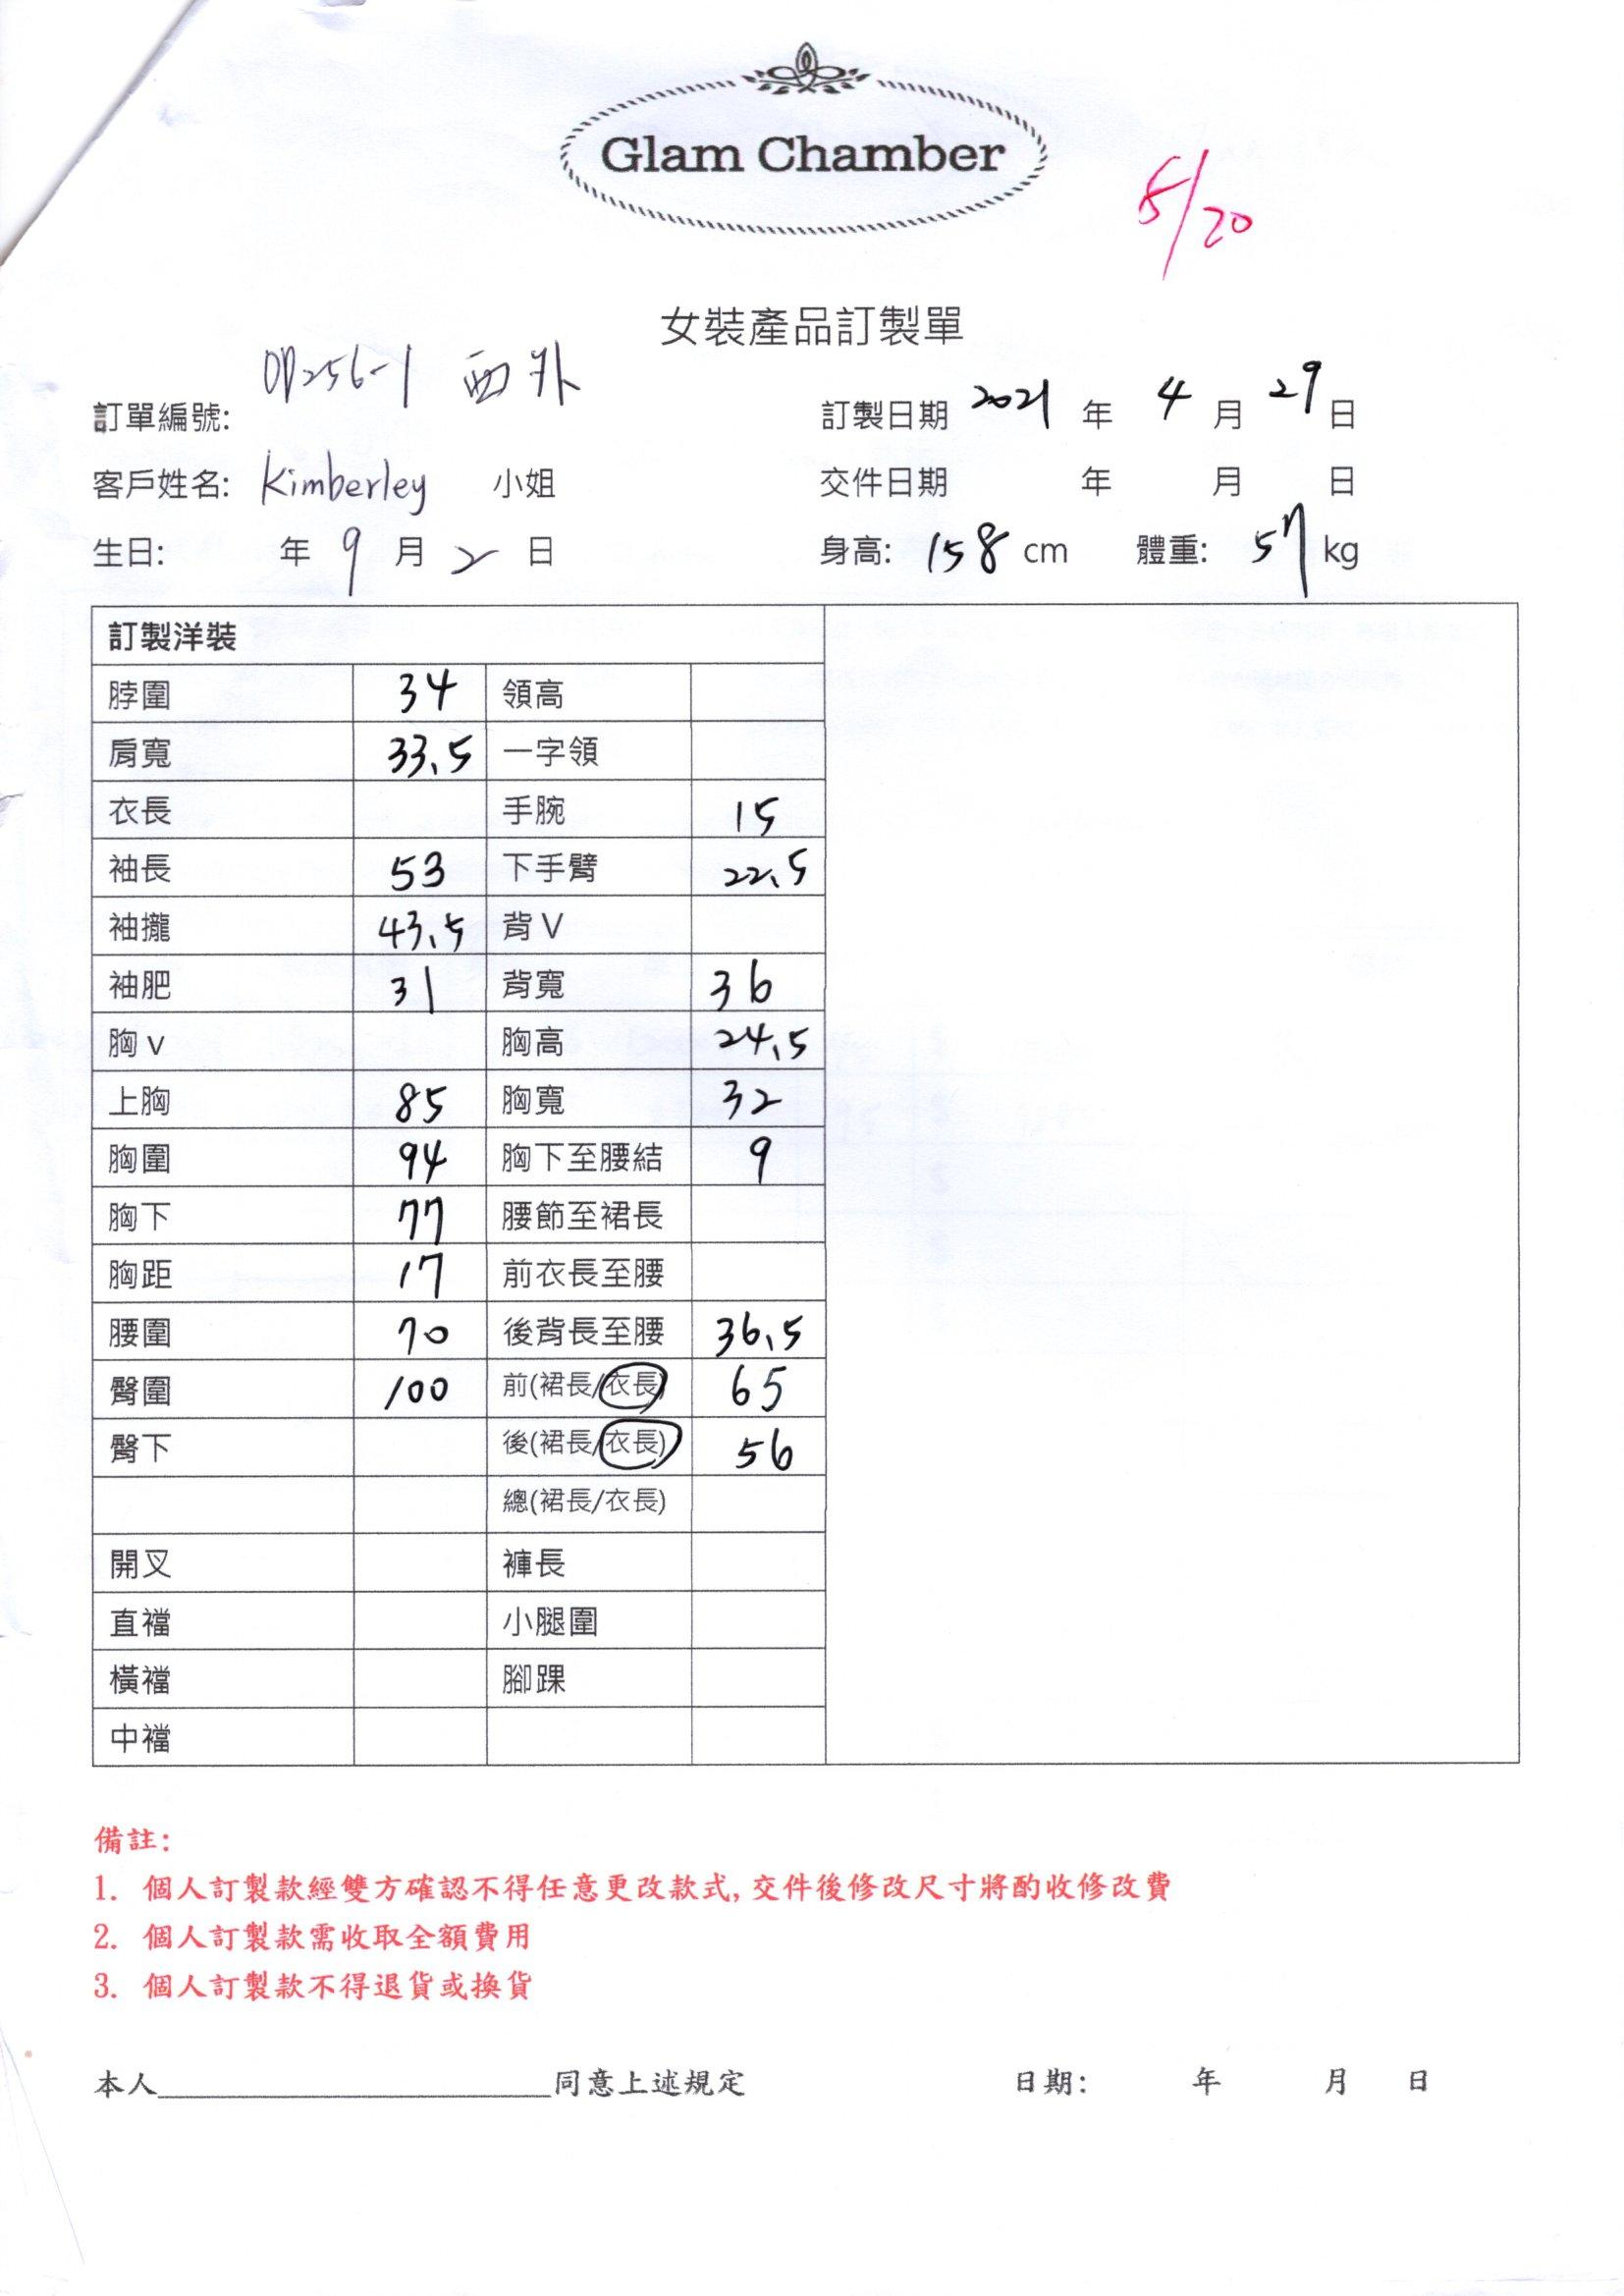 Glam Chamber
5/20
女裝產品訂製單
訂單編號: OP256-1 西外
訂製日期 2021 年 4 月 29 日
客戶姓名: Kimberley 小姐
交件日期 年 月 日
生日: 年 9 月 2 日
身高: 158 cm 體重: 57 kg
訂製洋裝
脖圍 34 領高
肩寬 33.5 一字領
衣長 手腕 15
袖長 53 下手臂 22.5
袖攏 43.5 背V
袖肥 31 背寬 36
胸v 胸高 24.5
上胸 85 胸寬 32
胸圍 94 胸下至腰結 9
胸下 77 腰節至裙長
胸距 17 前衣長至腰
腰圍 70 後背長至腰 36.5
臀圍 100 前(裙長/衣長) 65
臀下 後(裙長/衣長) 56
總(裙長/衣長)
開叉 褲長
直襠 小腿圍
橫襠 腳踝
中襠
備註:
1. 個人訂製款經雙方確認不得任意更改款式, 交件後修改尺寸將酌收修改費
2. 個人訂製款需收取全額費用
3. 個人訂製款不得退貨或換貨
本人 同意上述規定 日期: 年 月 日